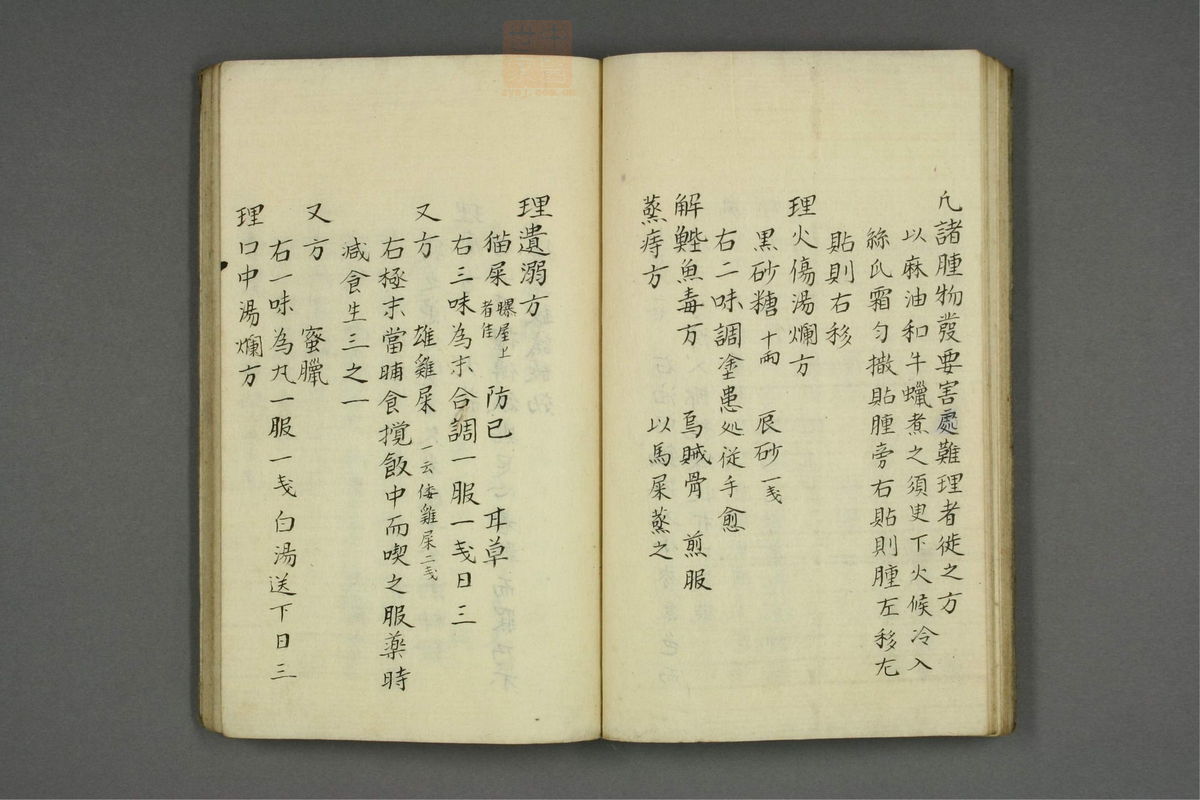 凡諸腫物發要害處難理者徙之方
以麻油和牛蠟煮之須臾下火候冷入
絲瓜霜勻撒貼腫旁右貼則腫左移左
貼則右移
理火傷湯爛方
黒砂糖 十兩 辰砂 一戔
右二味調塗患処従手愈
解鰹魚毒方 烏賊骨 煎服
蒸痔方 以馬屎蒸之
理遺溺方
猫屎 螺屋上者佳 防已 耳草
右三味為末合調一服一戔日三
又方 雄雞屎 一云倭雞屎二戔
右極末當晡食撹飯中而喫之服藥時
减食生三之一
又方 蜜臘
右一味為丸一服一戔白湯送下日三
理口中湯爛方